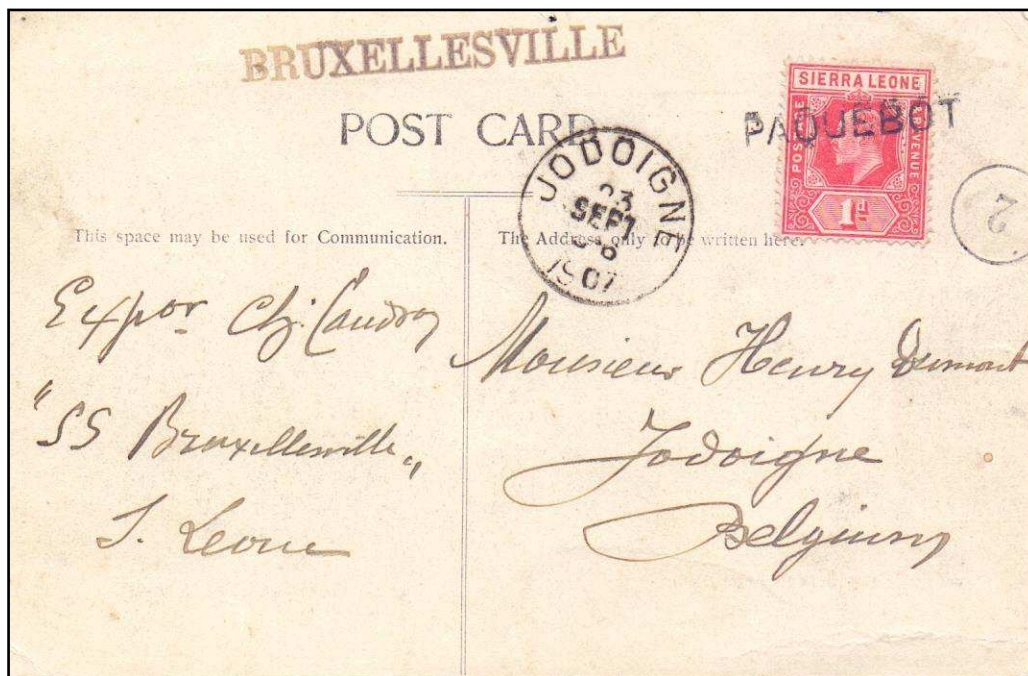 BRUXELLESVILLE
POST CARD
SIERRA LEONE
POSTAGE & REVENUE
1d
PAQUEBOT
2
JODOIGNE
23
SEPT
6
1907
This space may be used for Communication.
The Address only to be written here.
Expor
"SS Bruxellesville"
S. Leone
Monsieur Henry Dumont
Jodoigne
Belgium